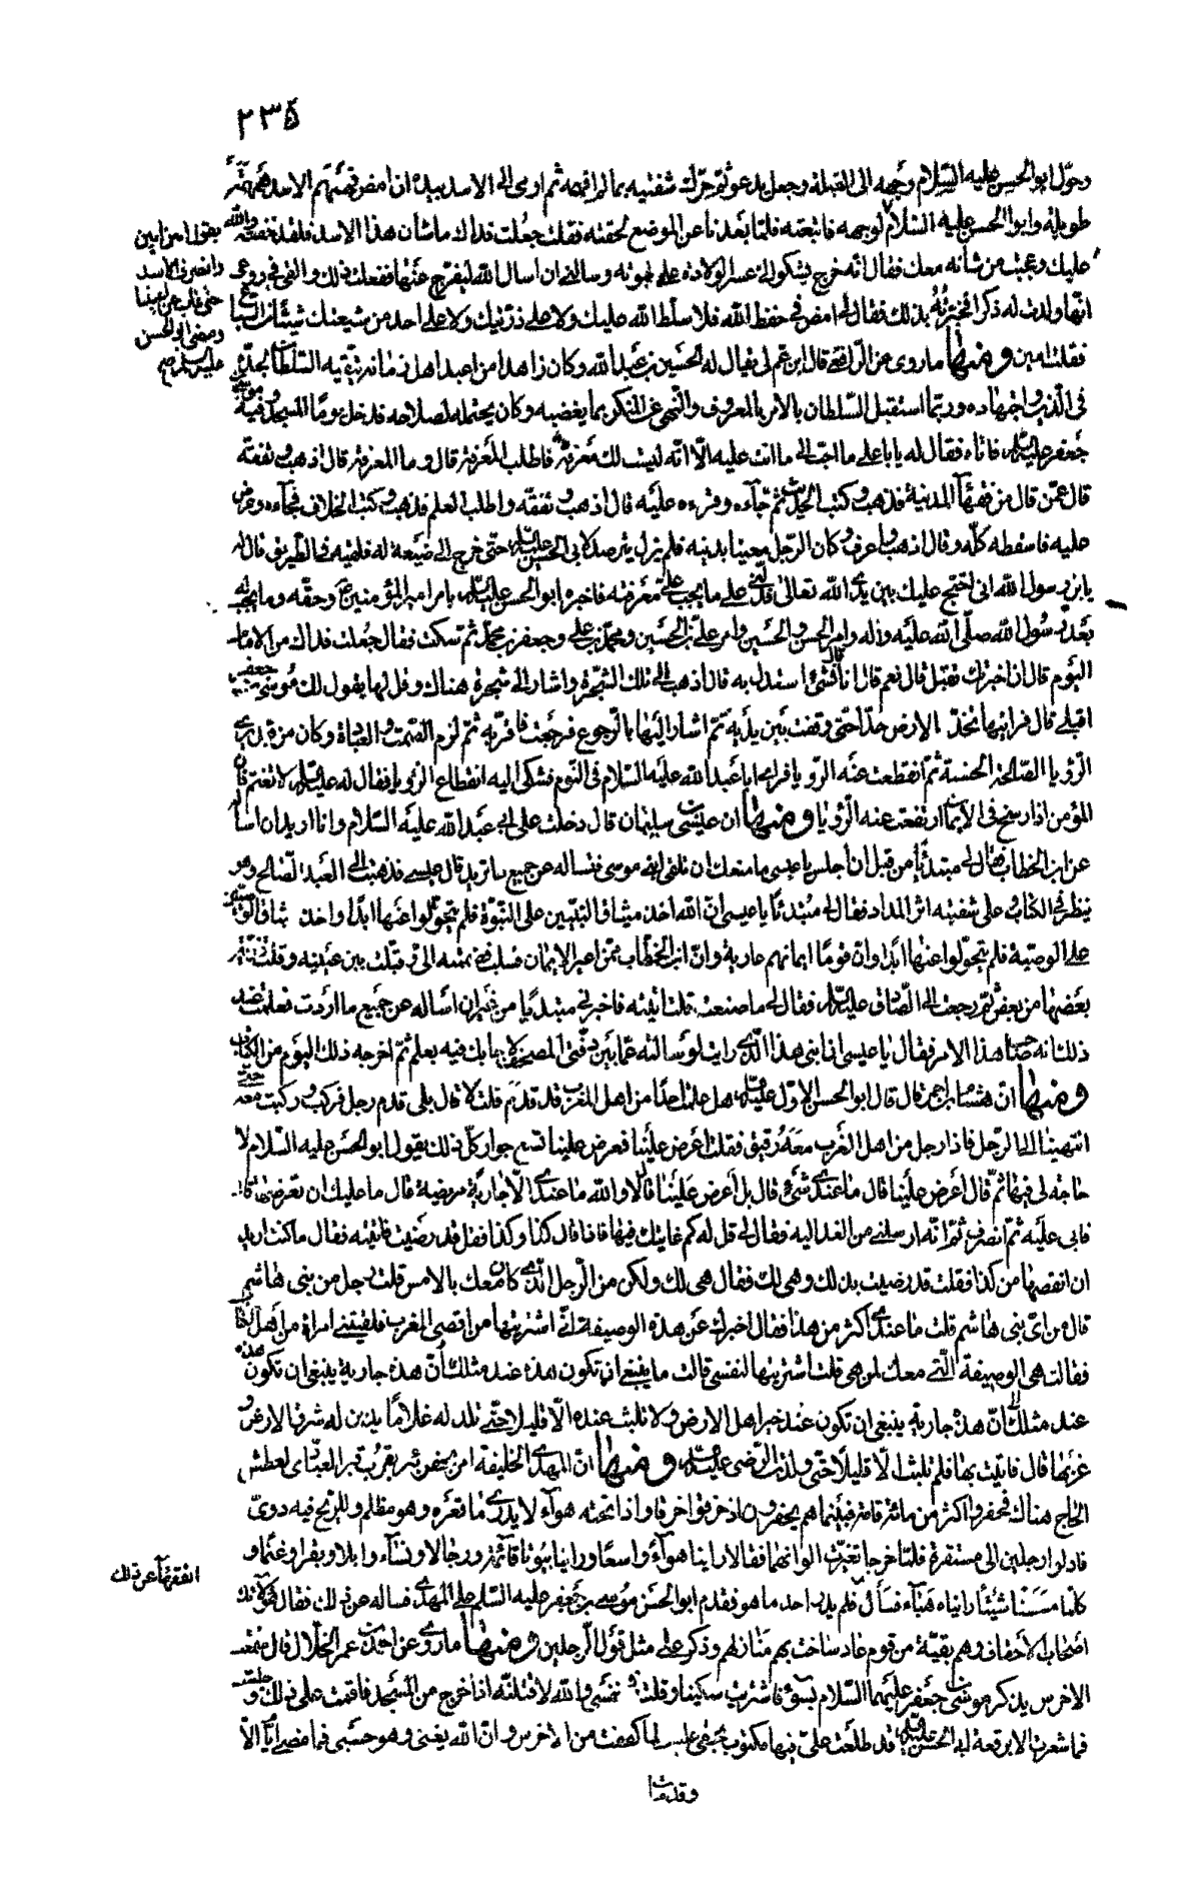 ٢٣٥
وحوّل ابو الحسن عليه السّلام وجهه الى القبلة وجعل يدعو ثم حرّك شفتيه بما لم افهمه ثم اومى الى الاسد بيده ان امض فهمهم الاسد همهمة
طويلة وابو الحسن عليه السّلام يقول امين امين وانصرف الاسد حتى غاب عن بيننا ومضى ابو الحسن عليه السلم لوجهه فاتبعته فلمّا بعدنا عن الموضع لحقته فقلت جعلت فداك ما شأن هذا الاسد فلقد خفته والله
عليك وعجبت من شأنه معك فقال انه خرج يشكو الىّ عسر الولادة على لبوته وسالنى ان اسال الله ليفرّج عنها ففعلت ذلك والقى فى روعى
انها ولدت له ذكرا فخبرته بذلك فقال لى امض فى حفظ الله فلا سلّط الله عليك ولا على ذرّيتك ولا على احد من شيعتك شيئا من السباع
فقلت امين ومنها ما روى عن الرافعى قال ابن عم لى يقال له الحسين بن عبد الله وكان زاهدا من اعبد اهل زمانه يتّقيه السلطان لجدّه
فى الدّين واجتهاده وربّما استقبل السّلطان بالامر بالمعروف والنّهى عن المنكر بما يغضبه وكان يحتمله لصلاحه فدخل يومًا المسجد وفيه موسى بن
جعفر عليه السلم فاتاه فقال له يا ابا على ما احبّ الى ما انت عليه الّا انّه ليست لك معرفة فاطلب المعرفة قال وما المعرفة قال اذهب وتفقّه
قال عمّن قال من فقهآء المدينة فذهب وكتب الحديث ثم جآءه وقرءه عليه قال اذهب وتفقّه واطلب العلم فذهب وكتب الخلاف فجآءه وعرض
عليه فاسقطه كلّه وقال اذهب واعرف وكان الرّجل معينا بدينه فلم يزل يترصد لابى الحسن عليه السلم حتى خرج الى ضيعة له فلقيه فى الطّريق فقال له
يابن رسول الله انى احتج عليك بين يدى الله تعالى فدلّنى على ما يجب علىّ معرفته فاخبره ابو الحسن عليه السلم بامر امير المؤمنين ع وحقّه وما يجب له
بعد رسول الله صلّى الله عليه واله وامر الحسن والحسين وامر على بن الحسين ومحمد بن على وجعفر بن محمّد ثم سكت فقال جعلت فداك من الامام
اليوم قال ان اخبرتك تقبل قال نعم قال انا قال فشئ استدل به قال اذهب الى تلك الشّجرة واشار الى شجرة هناك وقل لها يقول لك موسى بن جعفر
اقبلى قال فرايتها تخدّ الارض خدّا حتى وقفت بين يديه ثم اشار اليها بالرّجوع فرجعت فاقرّ به ثم لزم الصّمت والعبادة وكان من قبل يرى
الرّؤيا الصّالحة الحسنة ثم انقطعت عنه الرّؤيا فراى ابا عبد الله عليه السّلام فى النّوم فشكى اليه انقطاع الرّؤيا فقال له عليه السلم لا تغتم فان
المؤمن اذا رسخ فى الايمان ارتفعت عنه الرّؤيا ومنها ان عيسى بن سليمان قال دخلت على ابى عبد الله عليه السّلام وانا اريد ان اساله
عن ابى الخطاب فقال لى مبتدئًا من قبل ان اجلس يا عيسى ما منعك ان تلقى ابنى موسى فتساله عن جميع ما تريد قال عيسى فذهبت الى العبد الصّالح وهو
ينظر فى الكتاب وعلى شفتيه اثر المداد فقال لى مبتدئًا يا عيسى انّ الله اخذ ميثاق النبيّين على النبّوة فلم يتحوّلوا عنها ابدًا واخذ ميثاق الوصيّين
على الوصيّة فلم يتحوّلوا عنها ابدًا وانّ قومًا ايمانهم عارية وانّ ابا الخطّاب ممّن اعير الايمان فسلبه فضممته الىّ وقبّلت بين عينيه وقلت ذرّية
بعضها من بعض ثم رجعت الى الصّادق عليه السلم فقال لى ما صنعت قلت اتيته فاخبرنى مبتديًا من غير ان اساله عن جميع ما اردت فعلمت عند
ذلك انه صاحب هذا الامر فقال يا عيسى ان ابنى هذا الّذى رايت لو سالته عمّا بين دفّتى المصحف لاجابك فيه بعلم ثم اخرجه ذلك اليوم من الكتاب
ومنها انّ هشام بن احمر قال قال ابو الحسن الاوّل عليه السلم هل علمت احدًا من اهل المغرب قد قدم قلت لا قال بلى قدم رجل فركب وركبت معه حتى
انتهينا الى الرّجل فاذا رجل من اهل الغرب معه رقيق فقلت اعرض علينا فعرض علينا تسع جوار كل ذلك يقول ابو الحسن عليه السّلام لا
حاجة لى فيها ثمّ قال اعرض علينا قال ما عندى شئ قال بل اعرض علينا قال لا والله ما عندى الّا جارية مريضة قال ما عليك ان تعرضها
فابى عليه ثم انصرف ثم انّه ارسلنى من الغد اليه فقال لى قل له كم غايتك فيها فاذا قال كذا وكذا فقل قد رضيت فاتيته فقال ما كنت اريد
ان انقصها من كذا فقلت قد رضيت بذلك وهى لك فقال هى لك ولكن من الرّجل الّذى كان معك بالامس قلت رجل من بنى هاشم
قال من اىّ بنى هاشم قلت ما عندى اكثر من هذا فقال اخبرك عن هذه الوصيفة انّى اشتريتها من اقصى المغرب فلقيتنى امراة من اهل الكتاب
فقالت هى الوصيفة الّتى معك لمن هى قلت اشتريتها لنفسى قالت ما ينبغى ان تكون هذه عند مثلك انّ هذه جارية ينبغى ان تكون هذه
عند مثلك انّ هذه جارية ينبغى ان تكون عند خير اهل الارض ولا تلبث عنده الّا قليلا حتى تلد له غلامًا يدين له شرق الارض و
غربها قال فاتيت بها فلم تلبث الّا قليلًا حتى ولدت الرّضى عليه السلم ومنها انّ المهدى الخليفة امر بحفر بئر بقرب قبر العبّادى لعطش
الحاج هناك فحفروا اكثر من مائة قامة فبينما هم يحفرون اذ خرقوا خرقا واذا تحته هوآء لا يدرى ما قعره وهو مظلم وللريح فيه دوىّ
فادلوا رجلين الى مستقره فلمّا خرجا تغيّرت الوانهما فقالا راينا هوآءً واسعًا وراينا بيوتا قآئمة ورجالا ونسآء وابلا وبقرا وغنما و
كلّما مسسنا شيئًا رايناه هبآء فسأل الفقهآء عن ذلك فلم يدر احد ما هو فقدم ابو الحسن موسى بن جعفر عليه السّلم على المهدى فساله عن ذلك فقال هؤلآء
اصحاب الاحقاف وهم بقيّة من قوم عاد ساخت بهم منازلهم وذكر على مثل قول الرجلين ومنها ما روى عن احمد بن عمر الخلّال قال سمعت
الاخرس يذكر موسى بن جعفر عليهما السّلام بسوء فاشتريت سكينا وقلت فى نفسى والله لاقتلنّه اذا خرج من المسجد فاقمت على ذلك وجلست
فما شعرت الا برقعة ابى الحسن عليه السلم قد طلعت علىّ فيها مكتوب بحقى عليك لما كففت عن الاخرس وان الله يغنى وهو حسبى فما مضى ايّام الّا
وقد مات